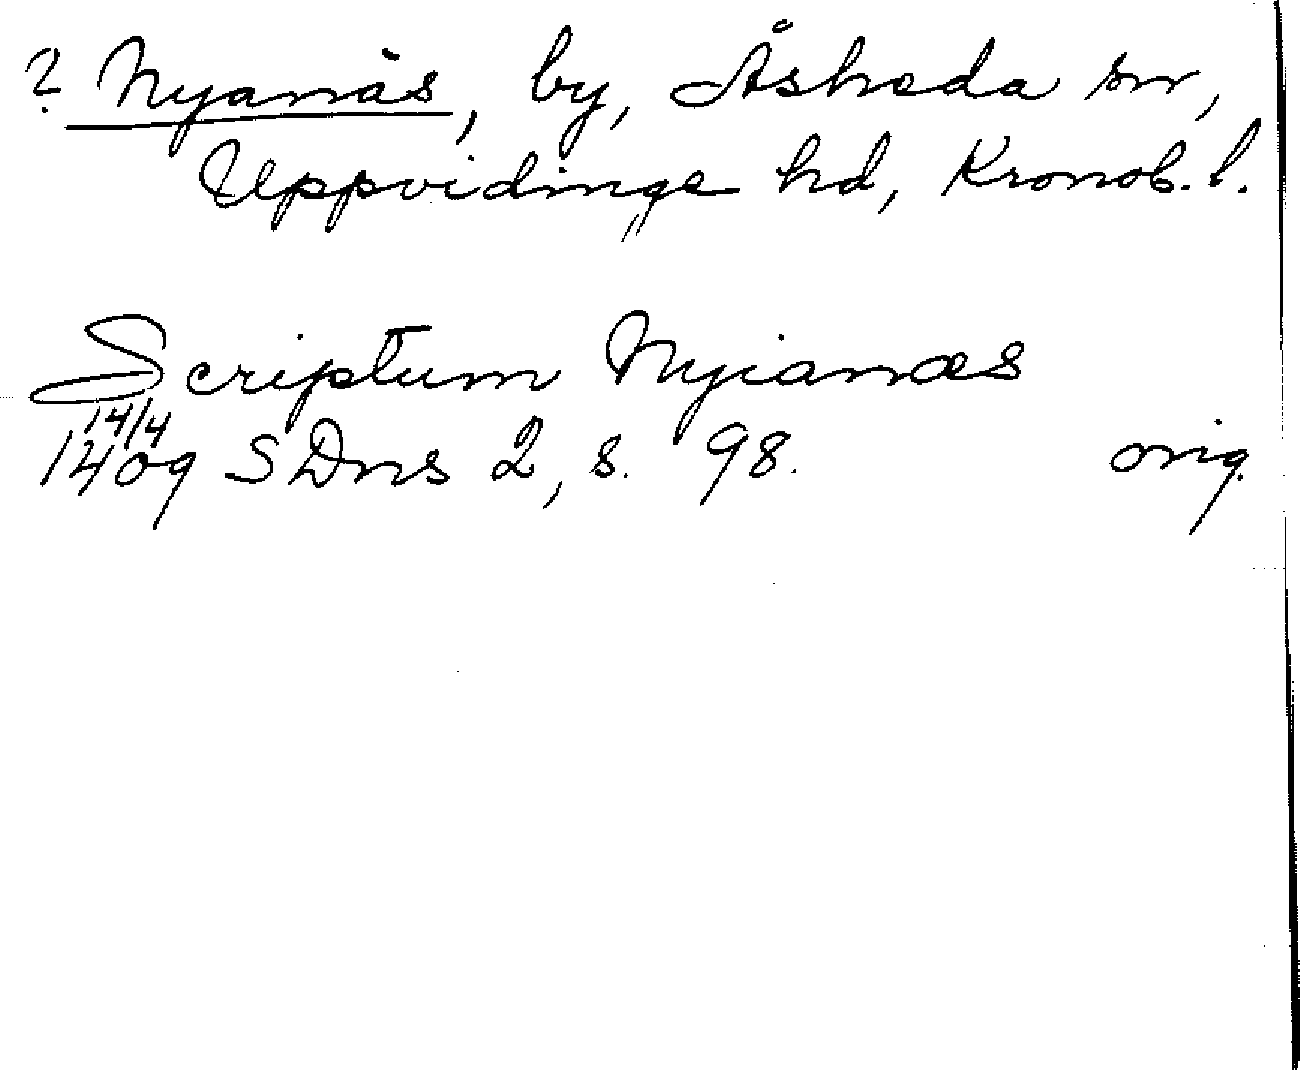 ? Nyanäs, by, Åsheda sn,
Uppvidinge hd, Kronob. l.
Scriptum Nyianæs
14/4
1409 SDns 2, s. 98. orig.